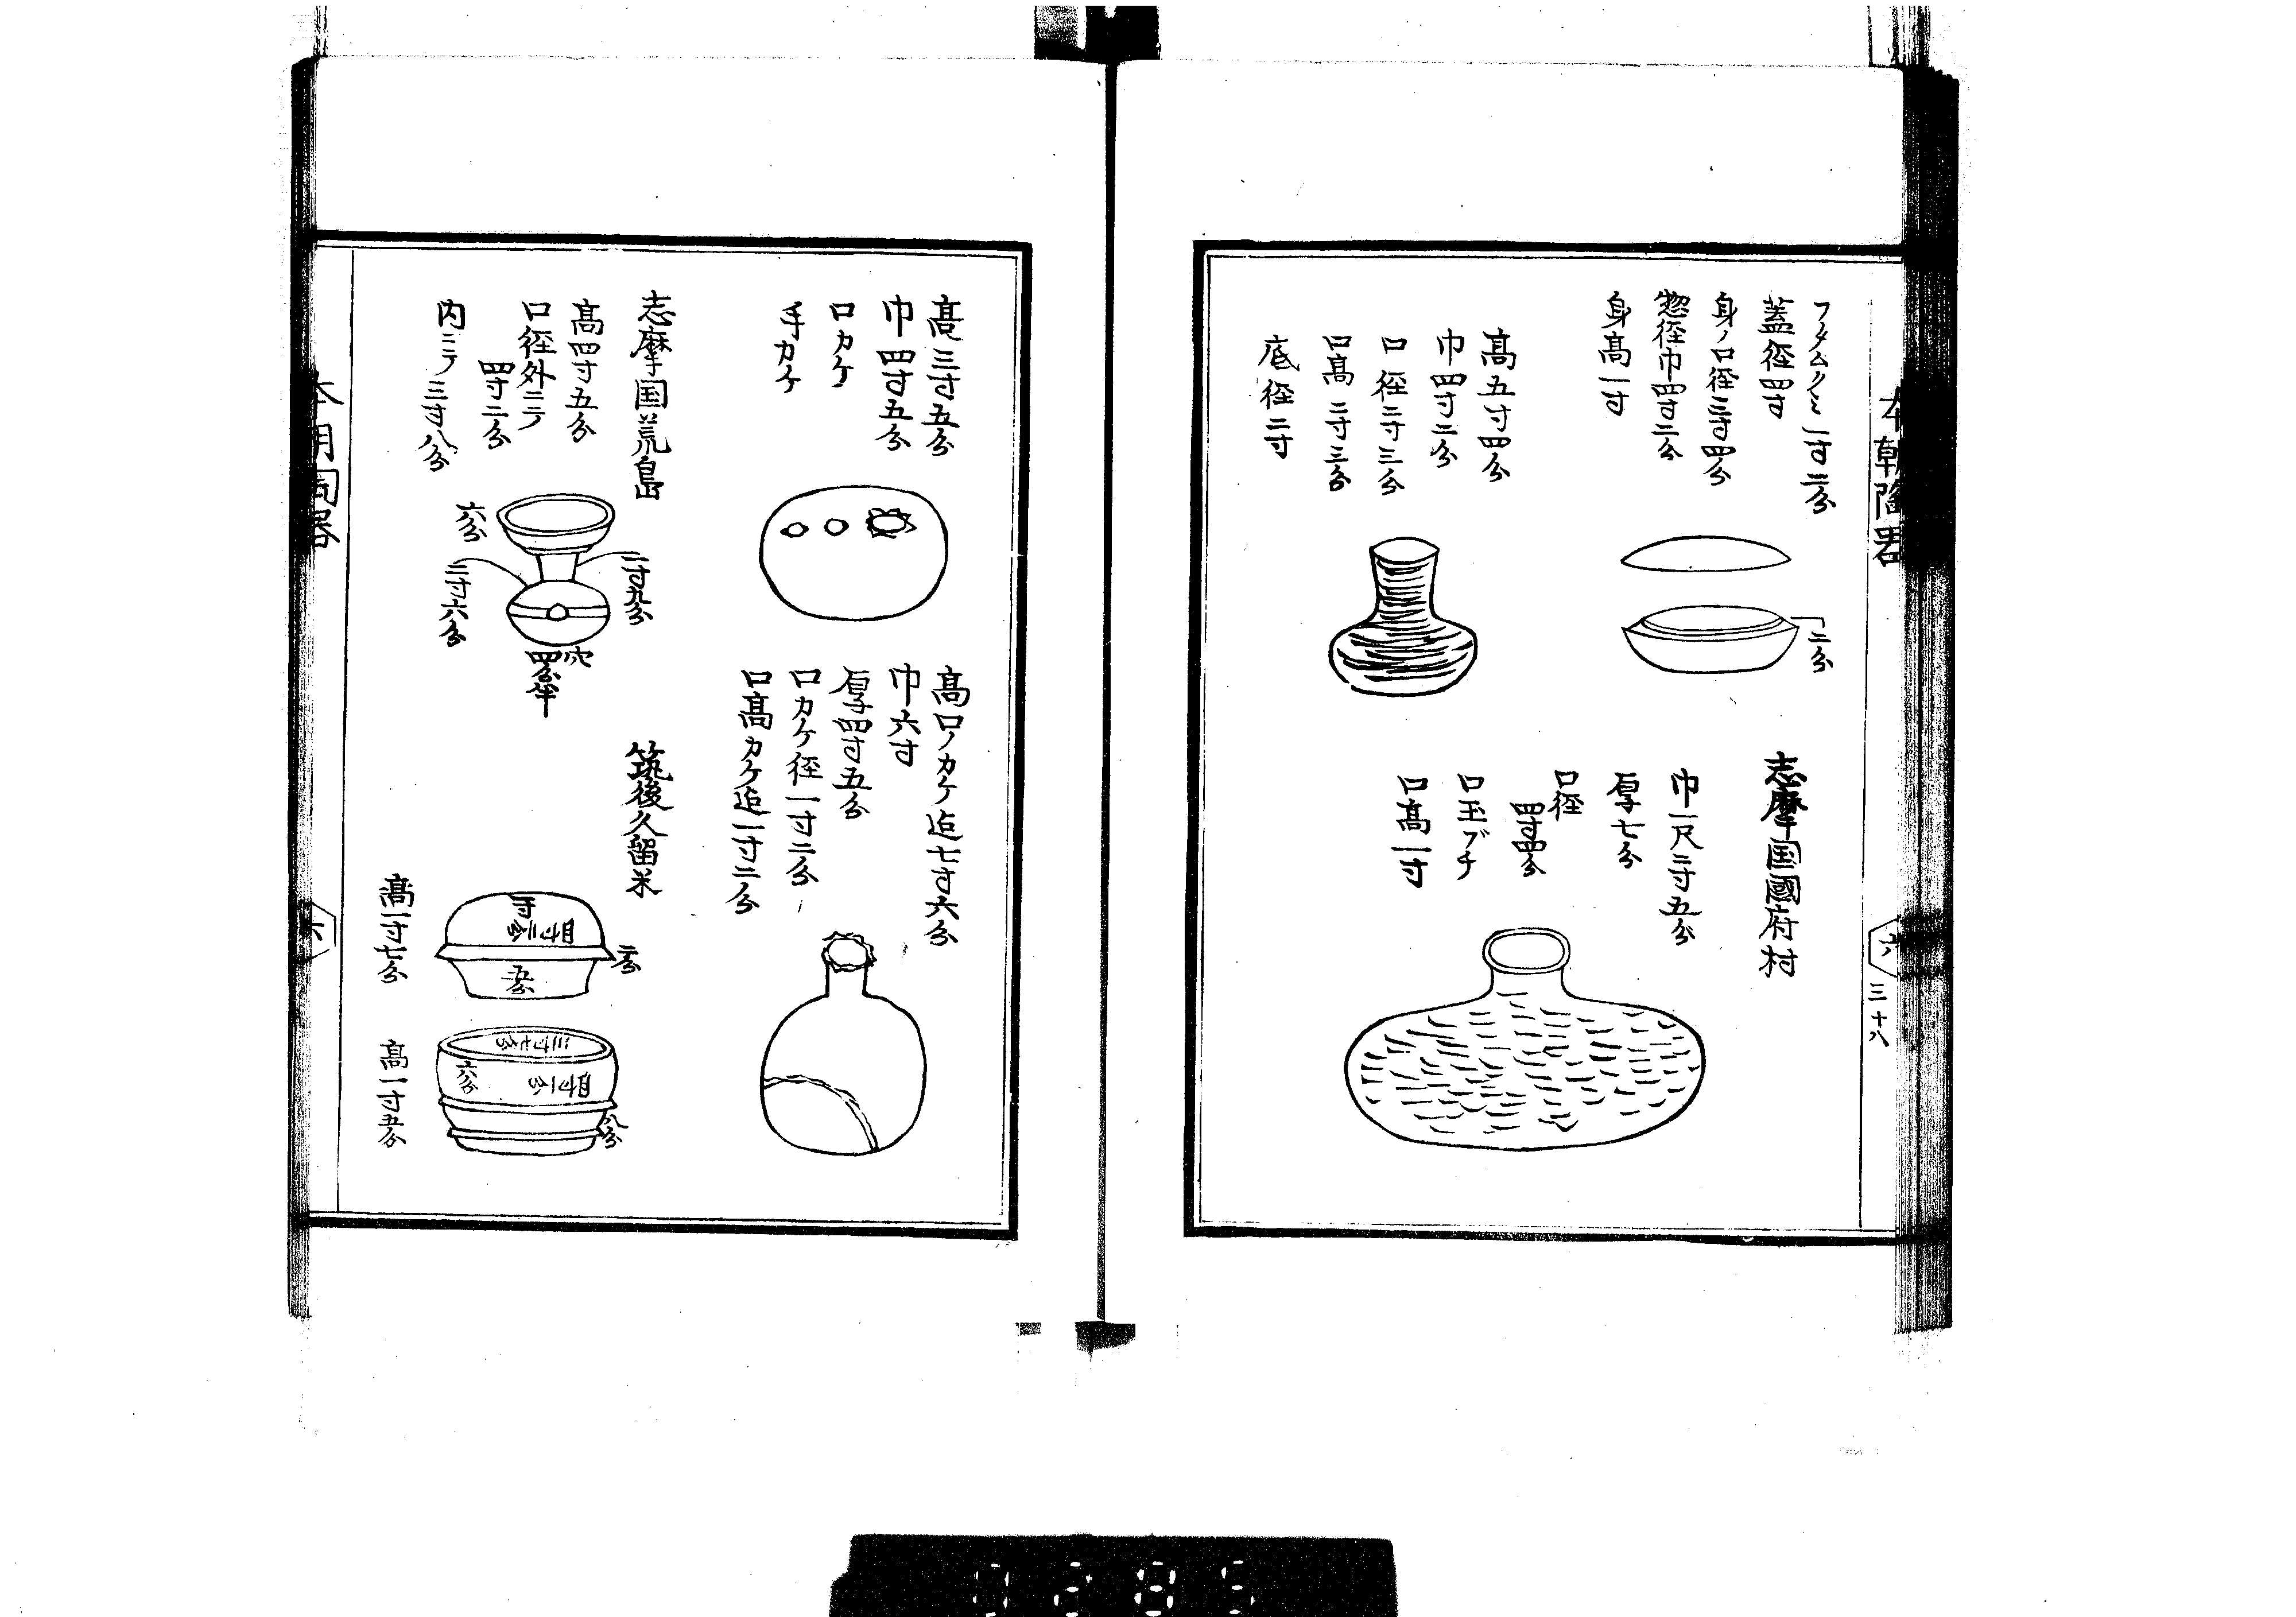 本朝陶器
六
三十八
フタムクミ一寸二分
蓋径四寸
身ノ口径三寸四分
惣径巾四寸二分
身高一寸
二分
高五寸四分
巾四寸二分
口径二寸三分
口高二寸三分
底径二寸
志摩国國府村
巾一尺二寸五分
厚七分
口径
四寸四分
口玉ブチ
口高一寸
高三寸五分
巾四寸五分
口カケ
手カケ
高口ノカケ迠七寸六分
巾六寸
厚四寸五分
口カケ径一寸二分
口高カケ迠一寸二分
志摩国荒島
高四寸五分
口径外ニテ
四寸二分
内ニテ三寸八分
六分
二寸九分
二寸六分
穴
四分半
筑後久留米
高一寸七分
二分
五分
高一寸五分
三寸七分
六分
八分
本朝陶器
六